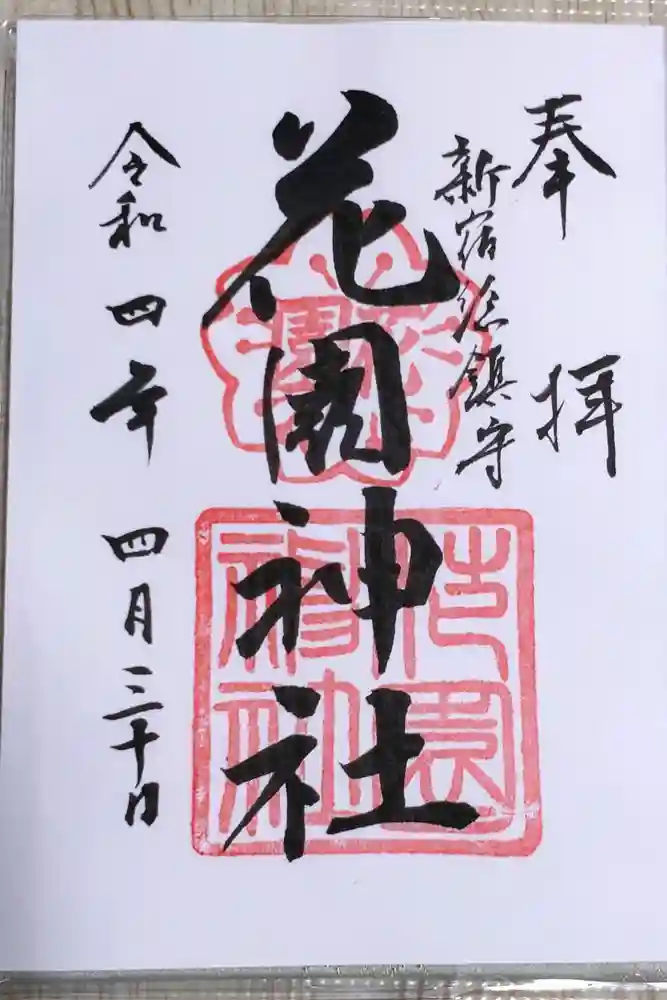 奉拝
新宿総鎮守
花園神社
令和四年四月三十日
花園神社